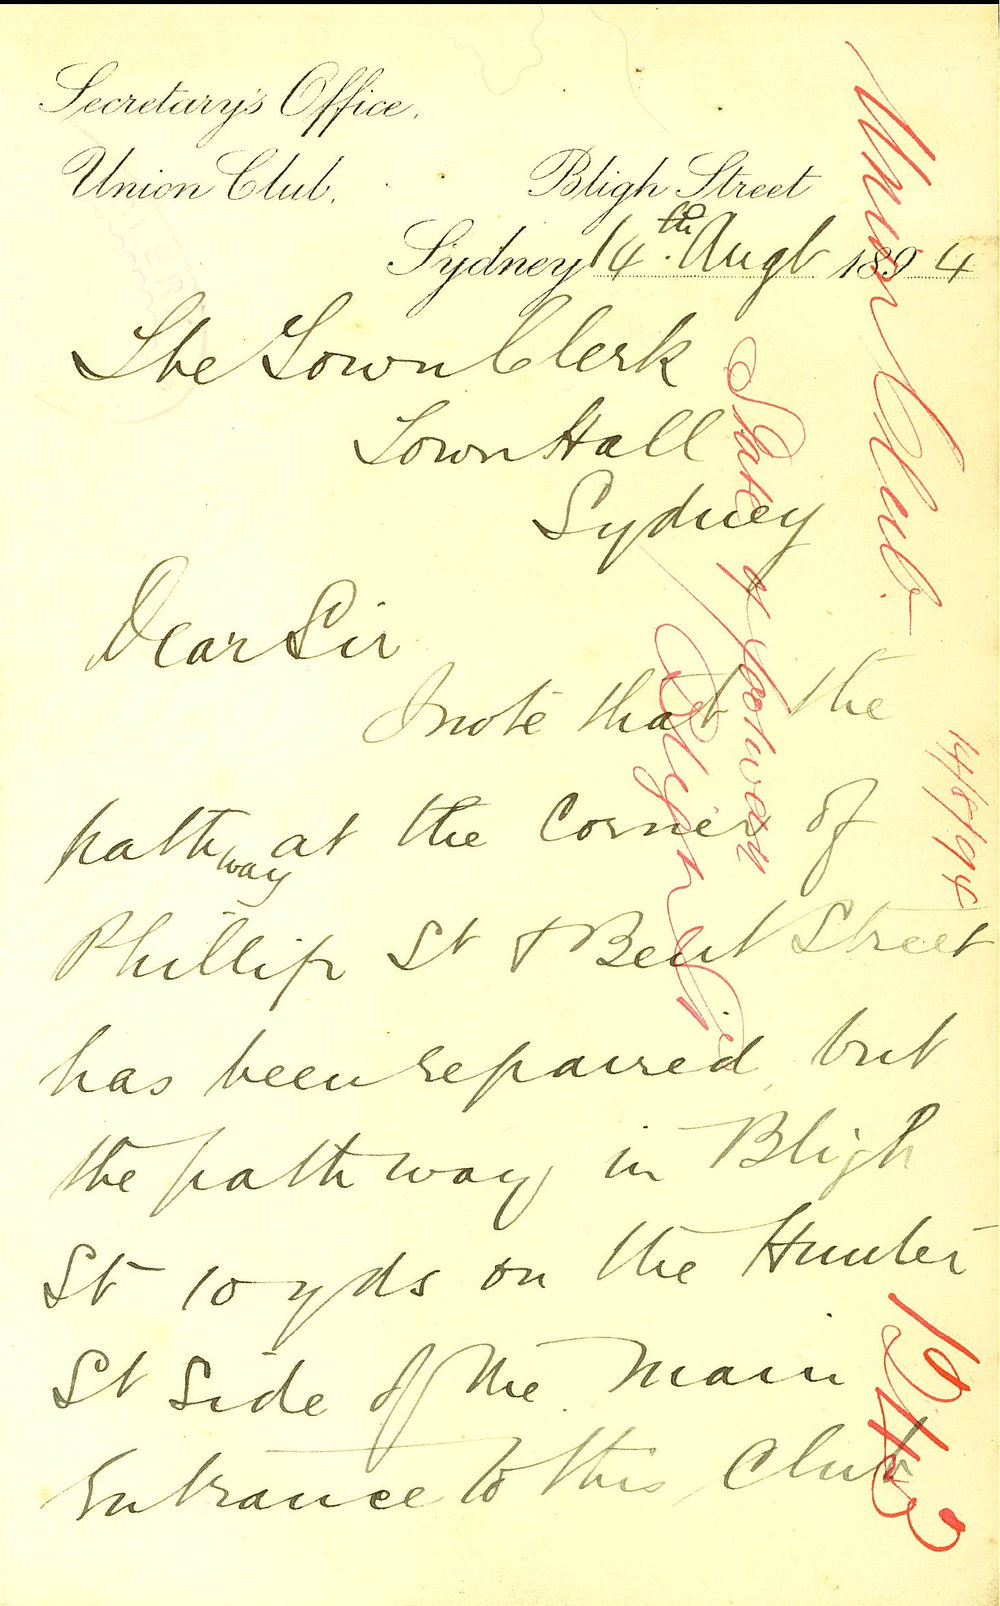 Secretary's Office.
Union Club. Bligh Street
Sydney 14th Augt 1894
The Town Clerk
Town Hall
Sydney
Dear Sir
I note that the
pathway at the corner of
Phillip St & Bent Street
has been repaired, but
the pathway in Bligh
St 10 yds on the Hunter
St Side of the Main
Entrance to this Club
Union Club.
State of footway
Bligh St
14/8/94